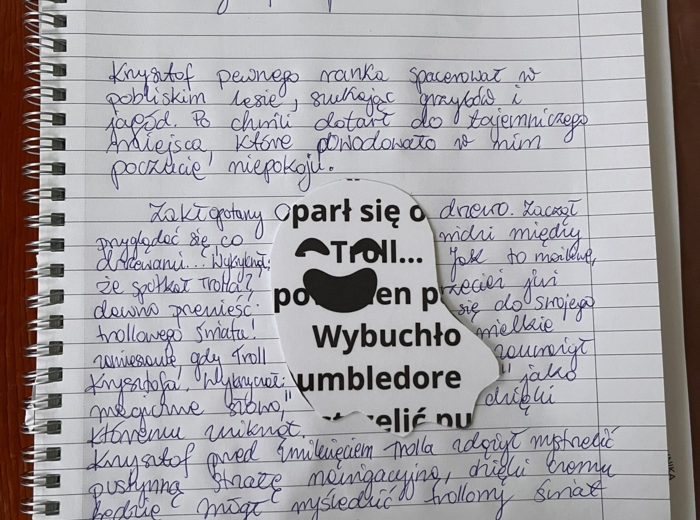 Krzysztof pewnego ranka spacerował w
pobliskim lesie, szukając grzybów i
jagód. Po chwili dotarł do tajemniczego
miejsca, które powodowało w nim
poczucie niepokoju.
Zakłopotany oparł się o drzewo. Zaczął
przyglądać się, co widzi między
drzewami... Wykrzyknął: Troll... Jak to możliwe,
że spotkał Trolla!? po en przecież już
dawno przenieść się do swojego
trollowego świata! Wybuchło wielkie
zamieszanie gdy Troll zauważył
Krzysztofa! Wykrzyczał: umbledore " jako
magiczne słowo, dzięki
któremu zniknął. strzelić pu
Krzysztof przed zniknięciem Trolla zdążył wystrzelić
pustynną strzałę nawigacyjną, dzięki czemu
będzie mógł wyśledzić trollowy świat